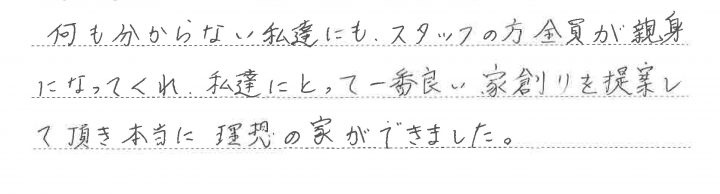 何も分からない私達にも、スタッフの方全員が親身
になってくれ、私達にとって一番良い家創りを提案し
て頂き本当に理想の家ができました。